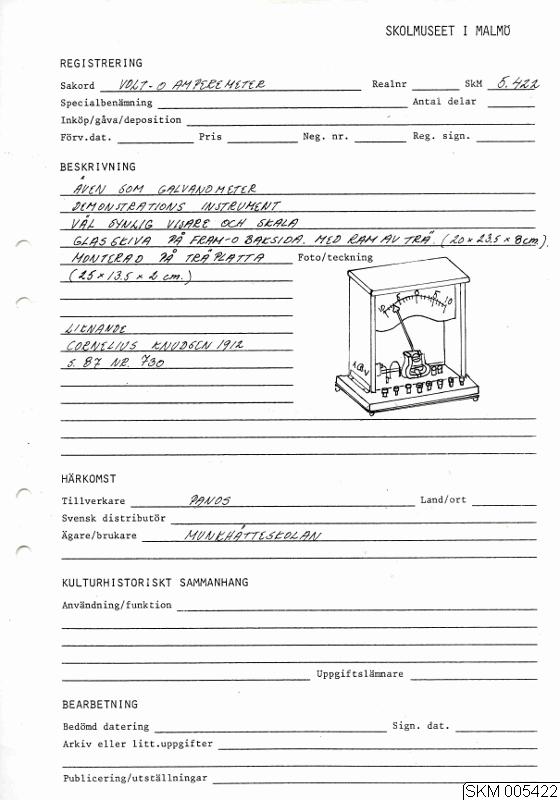 SKOLMUSEET I MALMÖ
REGISTRERING
Sakord VOLT- O AMPEREMETER Realnr SkM 5.422
Specialbenämning Antal delar
Inköp/gåva/deposition
Förv.dat. Pris Neg. nr. Reg. sign.
BESKRIVNING
ÄVEN SOM GALVANOMETER
DEMONSTRATIONS INSTRUMENT
VÄL SYNLIG VISARE OCH SKALA
GLASSKIVA PÅ FRAM-O BAKSIDA. MED RAM AV TRÄ. (20 x 23.5 x 8 cm).
MONTERAD PÅ TRÄPLATTA Foto/teckning
(25 x 13.5 x 2 cm.)
10 5 0 5 10
LIKNANDE
CORNELIUS KNUDSEN 1912
S. 87 NR. 730
HÄRKOMST
Tillverkare PANOS Land/ort
Svensk distributör
Ägare/brukare MUNKHÄTTESKOLAN
KULTURHISTORISKT SAMMANHANG
Användning/funktion
Uppgiftslämnare
BEARBETNING
Bedömd datering Sign. dat.
Arkiv eller litt.uppgifter
Publicering/utställningar
SKM 005422